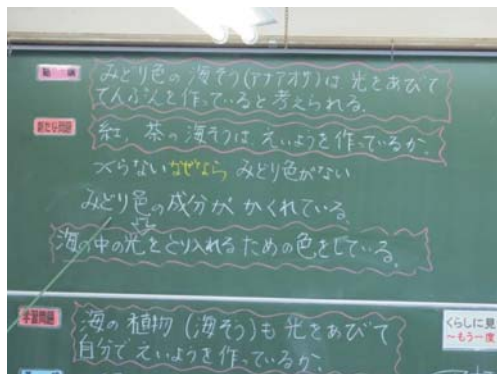 みどり色の海そう(アナアオサ)は光をあびて
でんぷんを作っていると考えられる。
新たな問題
紅、茶の海そうは、えいようを作っているか。
つくらない なぜなら みどり色がない
みどり色の成分が かくれている。
海の中の光をとり入れるための色をしている。
学習問題
海の植物(海そう)も光をあびて
自分でえいようを作っているか。
くらしに見
~もう一度